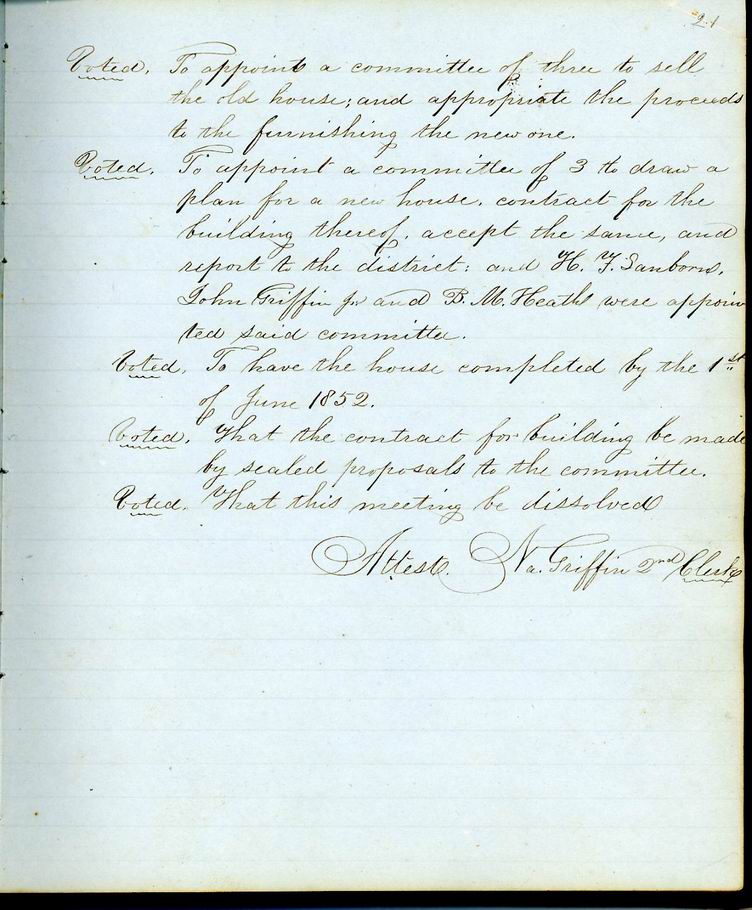 21
Voted. To appoint a committee of three to sell
the old house; and appropriate the proceeds
to the furnishing the new one.
Voted. To appoint a committee of 3 to draw a
plan for a new house, contract for the
building thereof, accept the same, and
report to the district; and H. F. Sanborn,
John Griffin Jr and B. M. Heath were appoin
ted said committee.
Voted. To have the house completed by the 1st
of June 1852.
Voted. That the contract for building be made
by sealed proposals to the committee.
Voted. That this meeting be dissolved
Attest. Na. Griffin 2nd Clerk